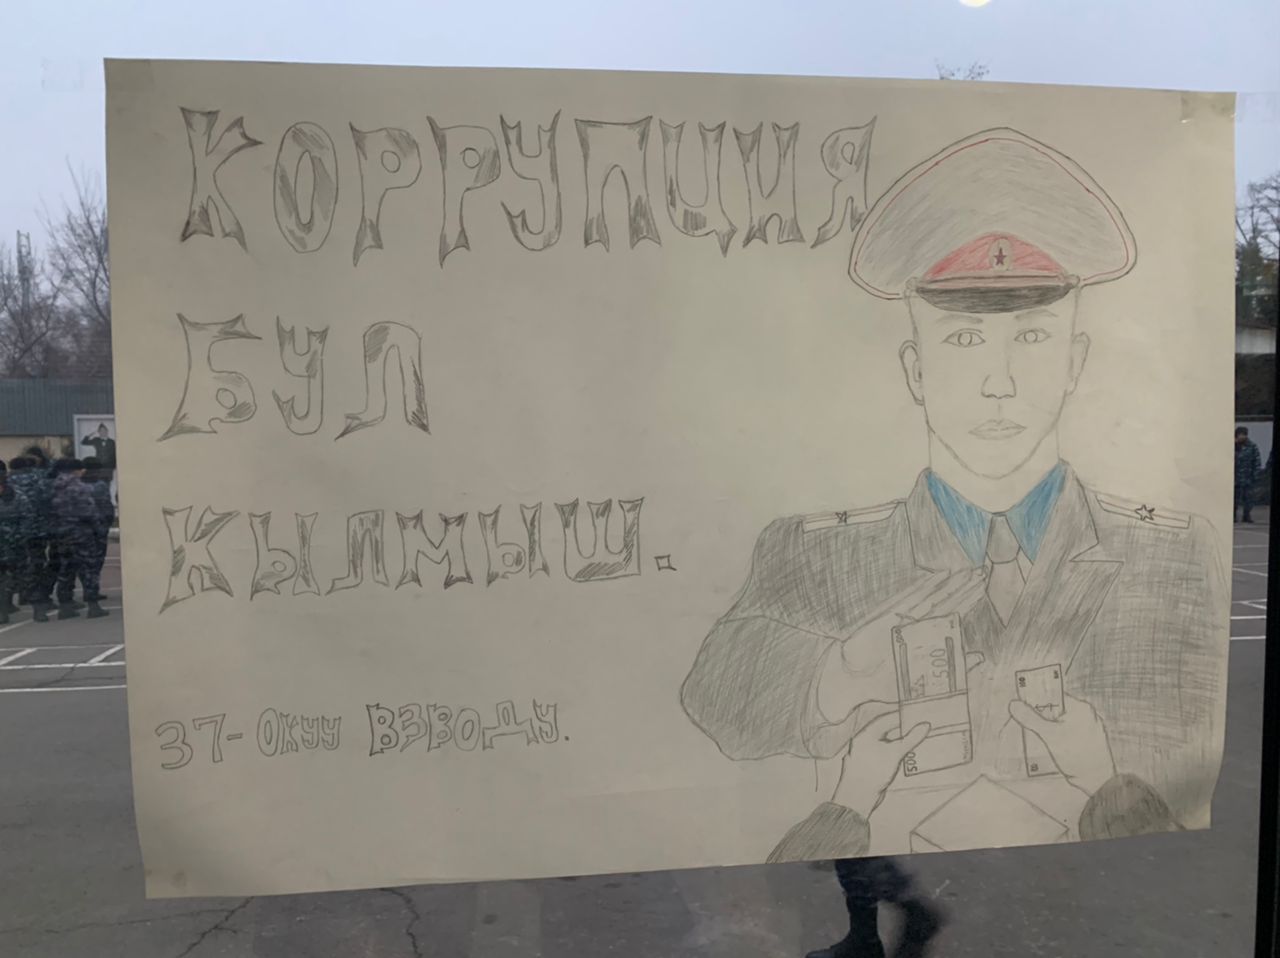 КОРРУПЦИЯ
БУЛ
КЫЛМЫШ.
37-ОКУУ ВЗВОДУ.
500
500